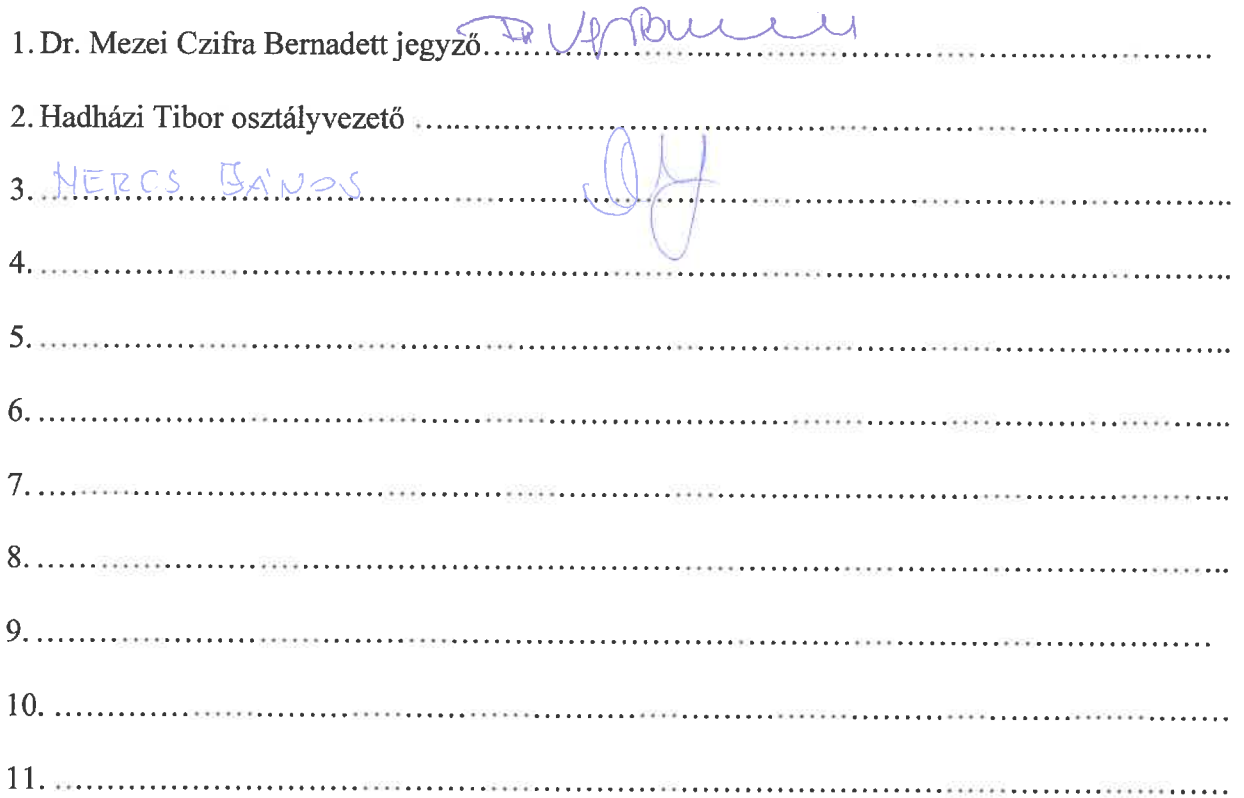 1. Dr. Mezei Czifra Bernadett jegyző
2. Hadházi Tibor osztályvezető
3. MERCS JÁNOS
4.
5.
6.
7.
8.
9.
10.
11.